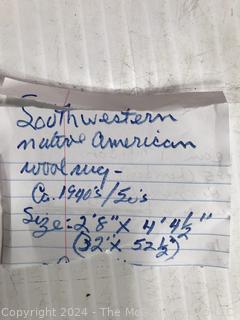 Southwestern
native American
wool rug -
Ca. 1940's/50's
Size: 2'8" X 4' 4½"
(32" X 52½")
© 2024 - Estatesales.org